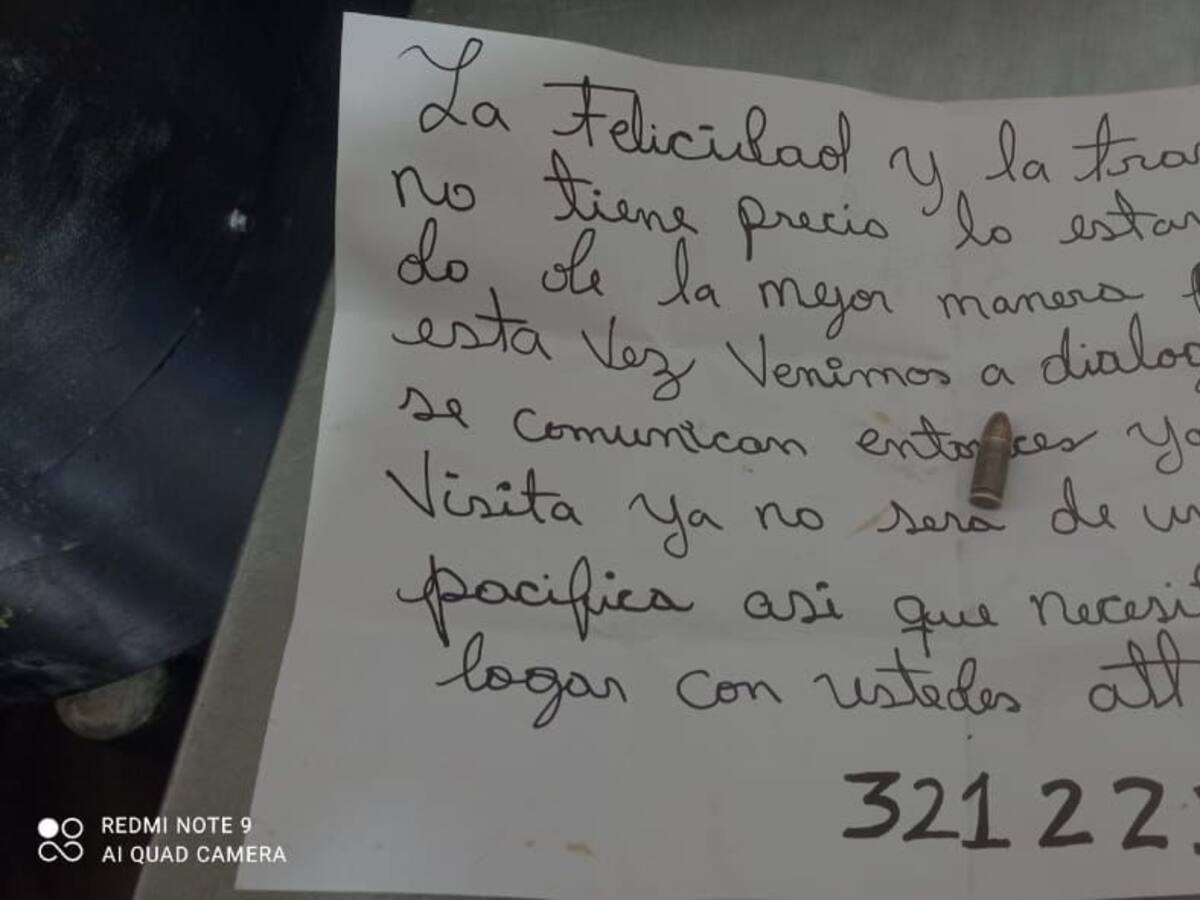 La Felicidad y la
no tiene precio lo
do de la mejor manera
esta Vez Venimos a
se comunican entonces
Visita ya no sera de
pacifica asi que
logar con ustedes att
321 22
REDMI NOTE 9
AI QUAD CAMERA